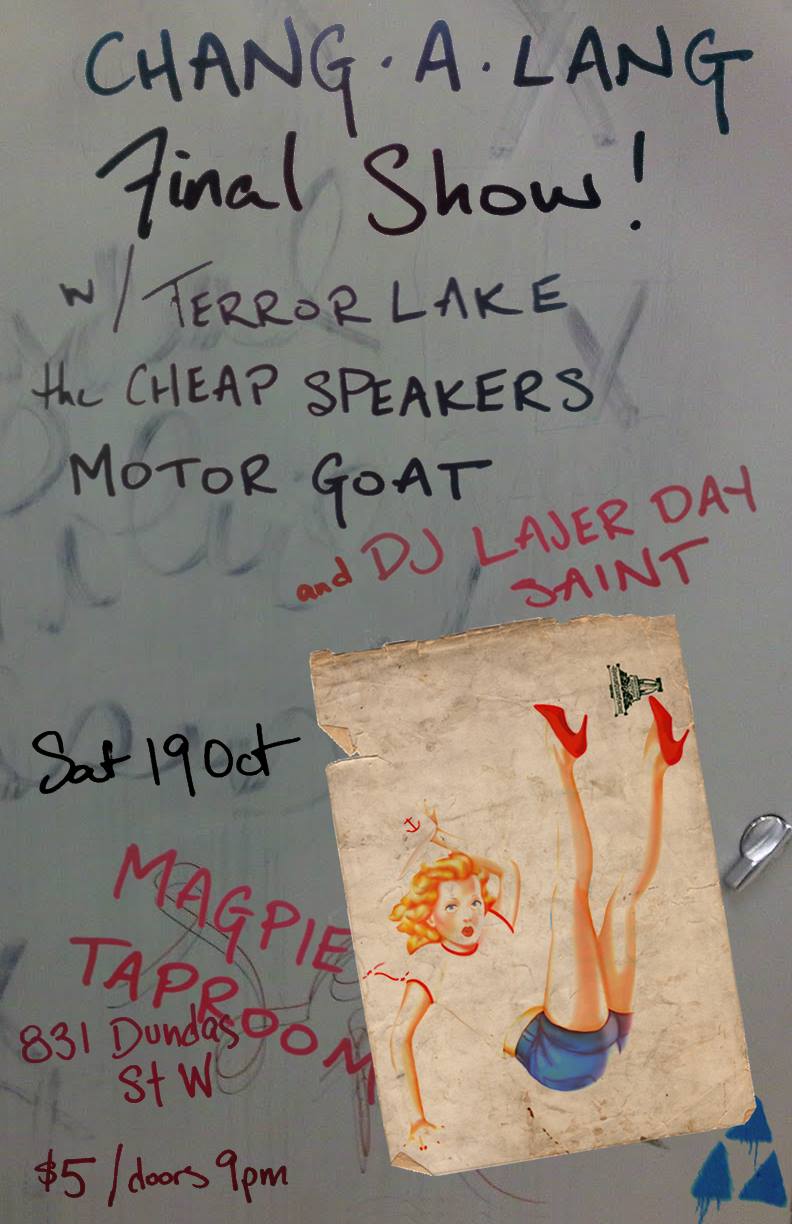 CHANG·A·LANG
Final Show!
w/ TERROR LAKE
the CHEAP SPEAKERS
MOTOR GOAT
and DJ LAJER DAY
SAINT
Sat 19 Oct
MAGPIE
TAPROOM
831 Dundas
St W
$5/doors 9pm